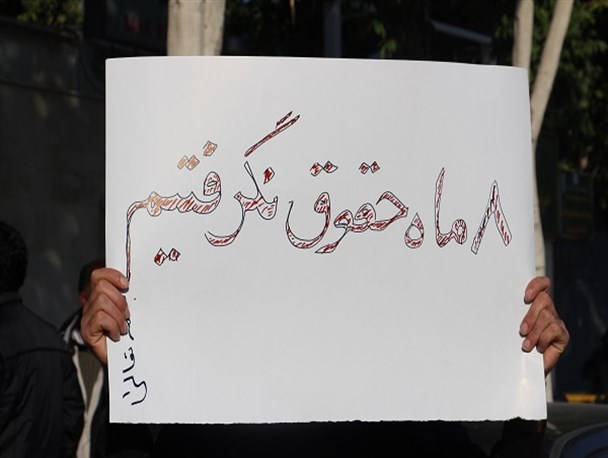 ۸ ماه حقوق نگرفتیم